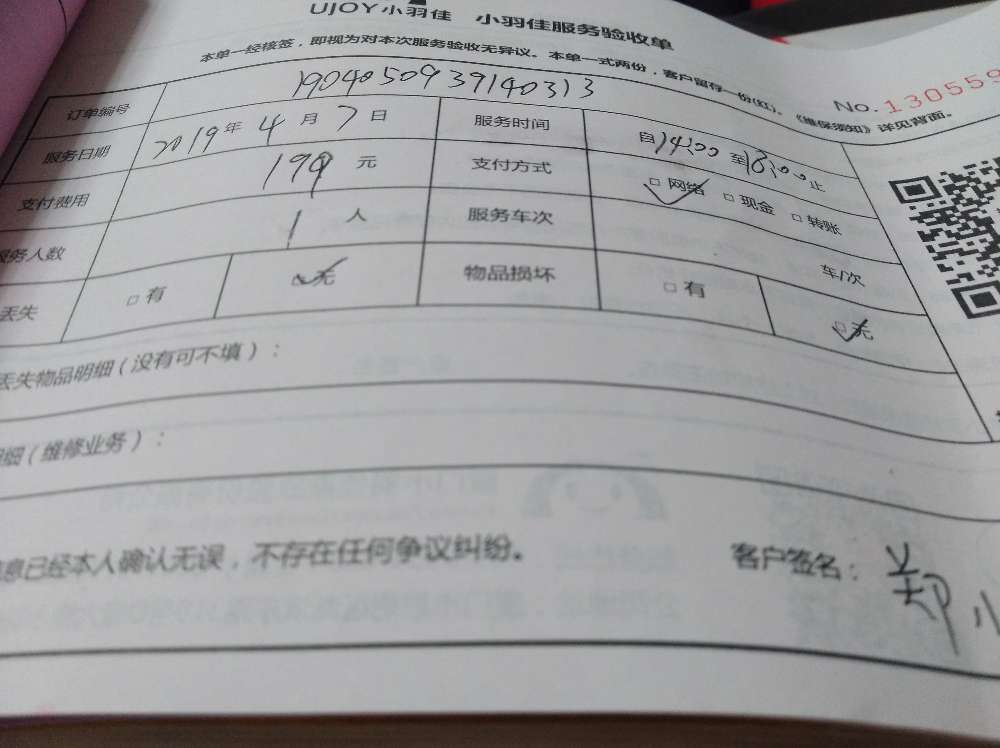 UJOY小羽佳 小羽佳服务验收单
本单一经核签，即视为对本次服务验收无异议。本单一式两份，客户留存一份(红)。《维保须知》详见背面。
No.130559
订单编号 1904050939140313
服务日期 2019年4月7日 服务时间 自14:00至18:00止
支付费用 199元 支付方式 □网络 □现金 □转账
服务人数 1人 服务车次 车/次
丢失 □有 □无 物品损坏 □有 □无
丢失物品明细(没有可不填)：
细(维修业务)：
息已经本人确认无误，不存在任何争议纠纷。 客户签名：郑